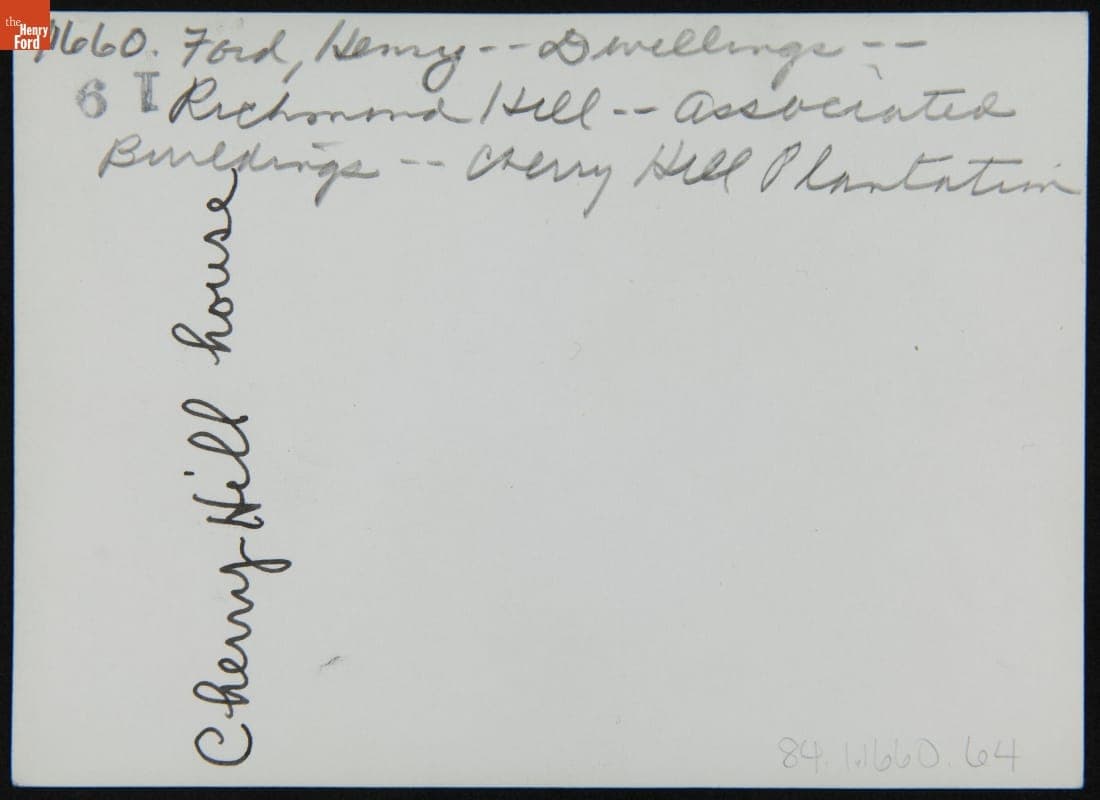 the
Henry
Ford
1660. Ford, Henry -- Dwellings --
6 I Richmond Hill -- Associated
Buildings -- Cherry Hill Plantation
Cherry Hill house
84.1.1660.64